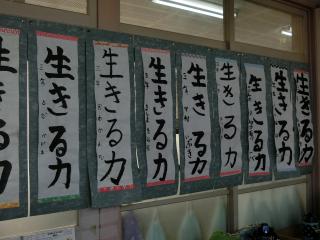 生きる力
生きる力
生きる力
生きる力
生きる力
生きる力
生きる力
生きる力